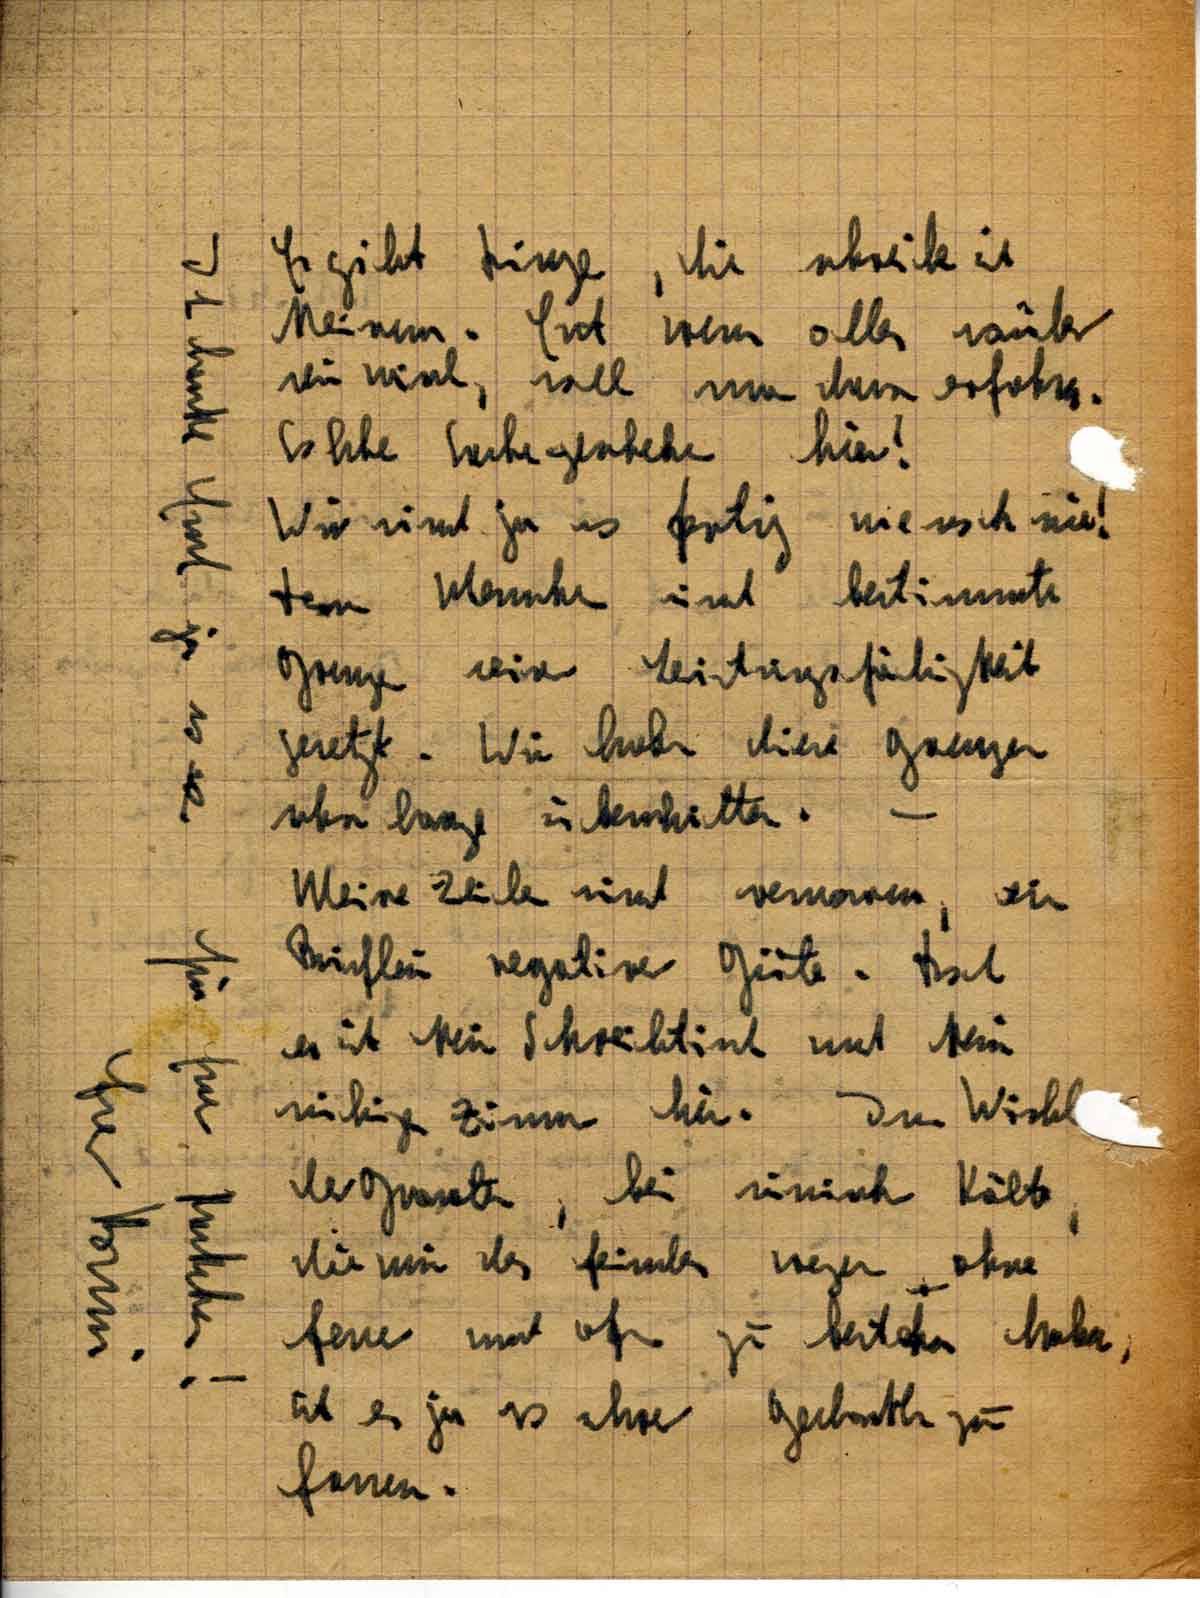 Es gibt Dinge, die schreib ich
Keinem. Erst wenn alles vorüber
sein wird, soll man davon erfahren.
Solche Sachen geschehen hier!
Wir sind ja so fertig wie noch nie!
Dem Menschen sind bestimmte
Grenzen seiner Leistungsfähigkeit
gesetzt. Wir haben diese Grenzen
schon lange überschritten. —
Meine Zeilen sind verworren, ein
Brieflein negativer Güte. Doch
es ist kein Schreibtisch und kein
ruhiges Zimmer hier. Im Wirbel
der Granaten, bei sibirischer Kälte,
die wir des Feindes wegen, ohne
Feuer und Ofen zu bestehen haben,
ist es ja so schwer Gedanken zu
fassen.
Ich danke Euch ja so sehr
für das Päckchen!
Euer